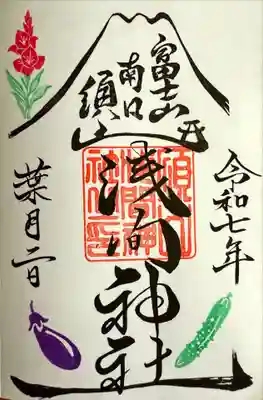 富士山
南口
須山
浅間神社
令和七年
葉月二日